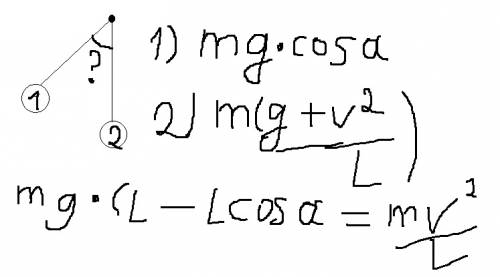 ?
1
2
1) mg·cosa
2) m(g + v²/L)
mg·(L - Lcosa = mv²/L